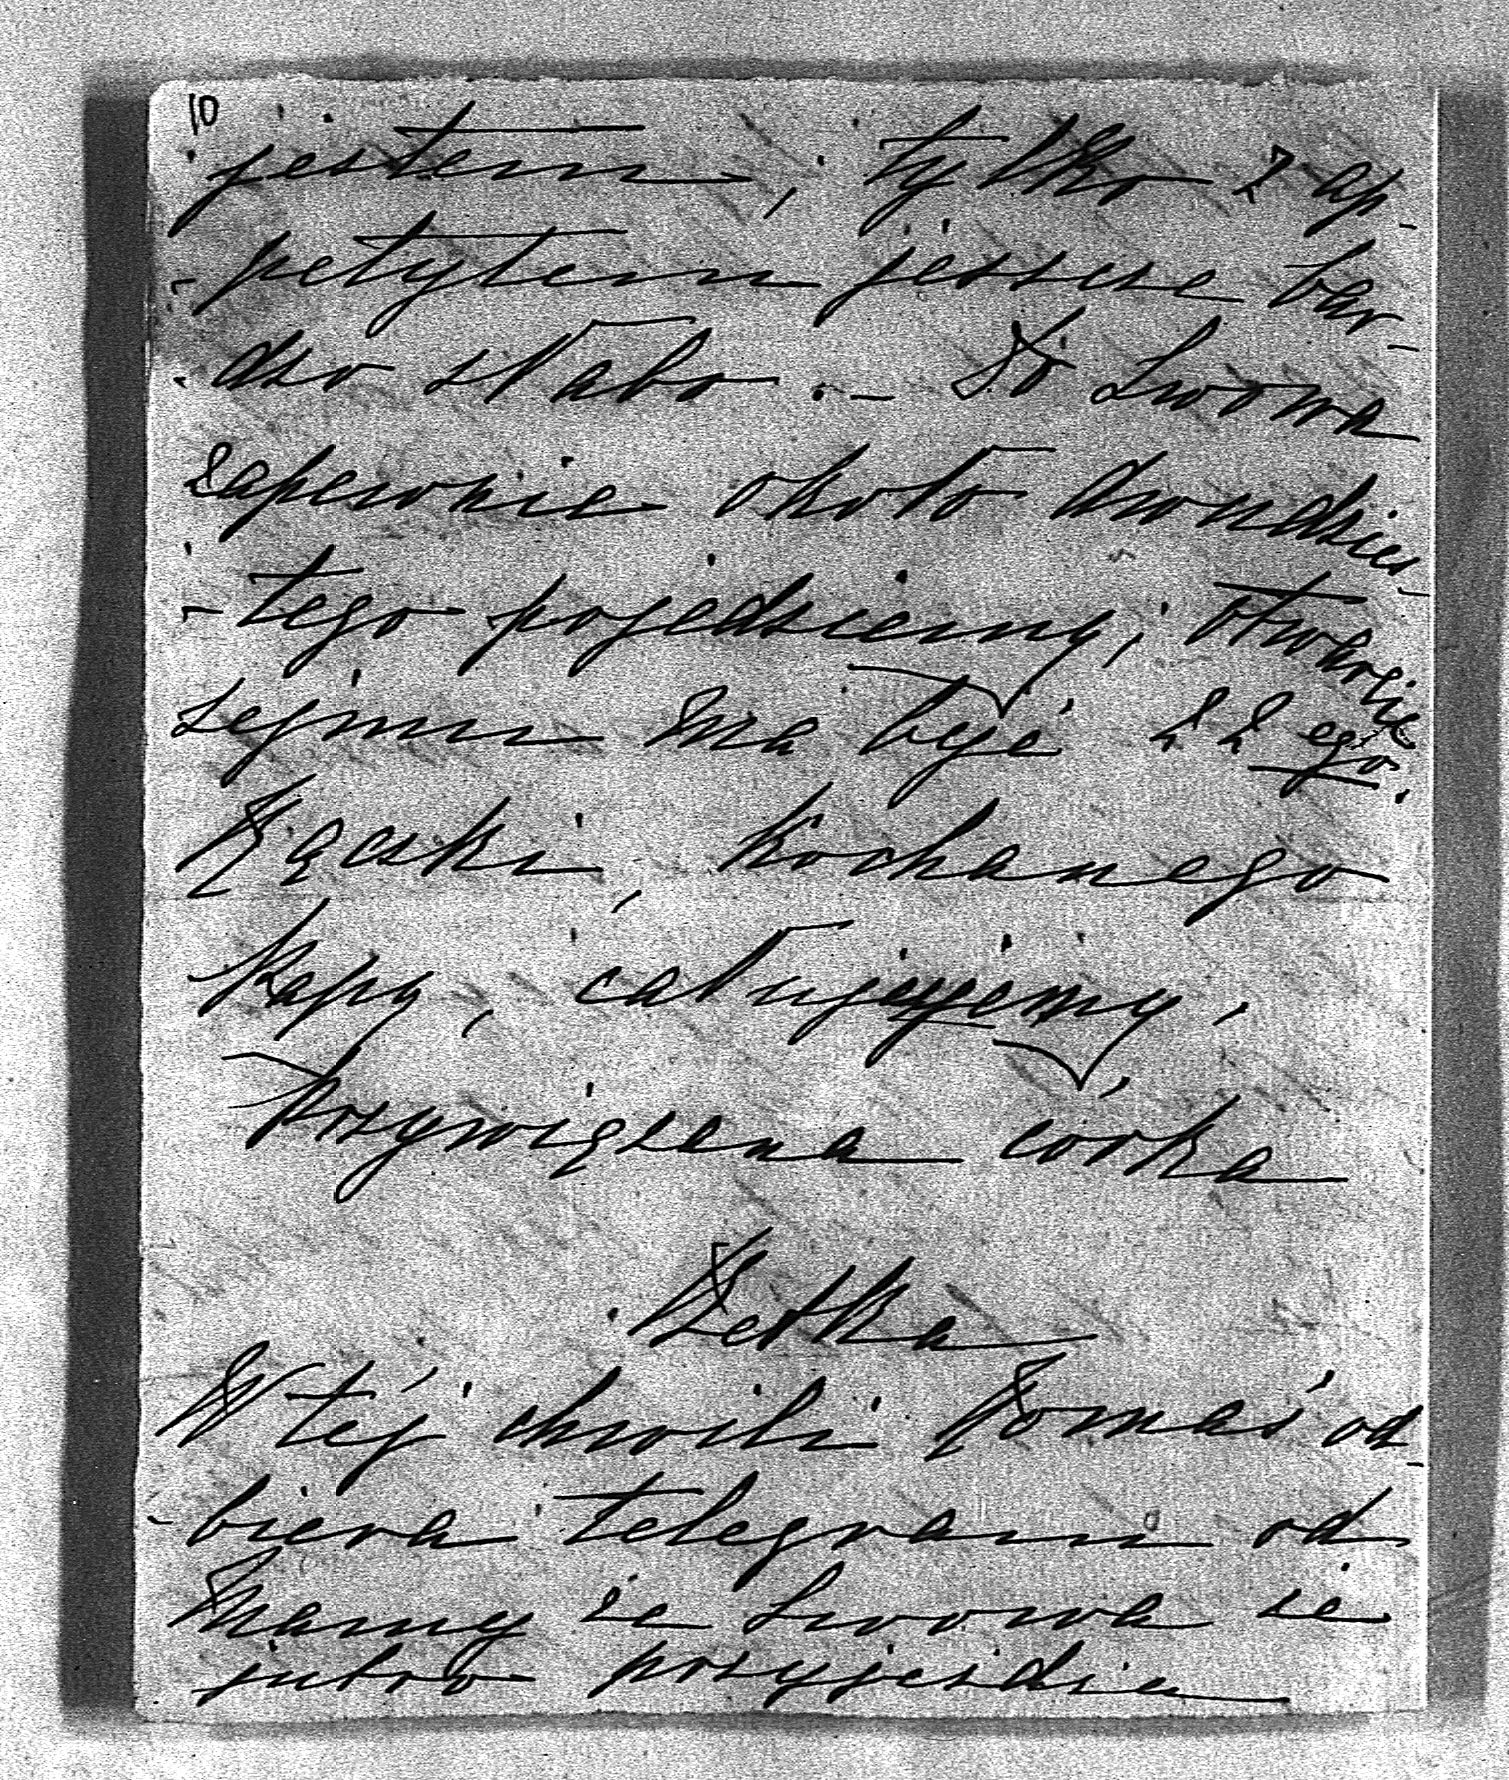 10
jestem, tylko z ap-
-petytem jeszcze bar-
-dzo słabo. – Do Lwowa
zapewnie około dwudzies-
-tego pojedziemy; otwarcie
sejmu ma być 22 ego.
Rączki, kochanego
Papy, całujęjemy,
Przywiązana córka
W téj chwili Tomaś od-
-biera telegram od
Mamy ze Lwowa że
jutro przyjeżdża